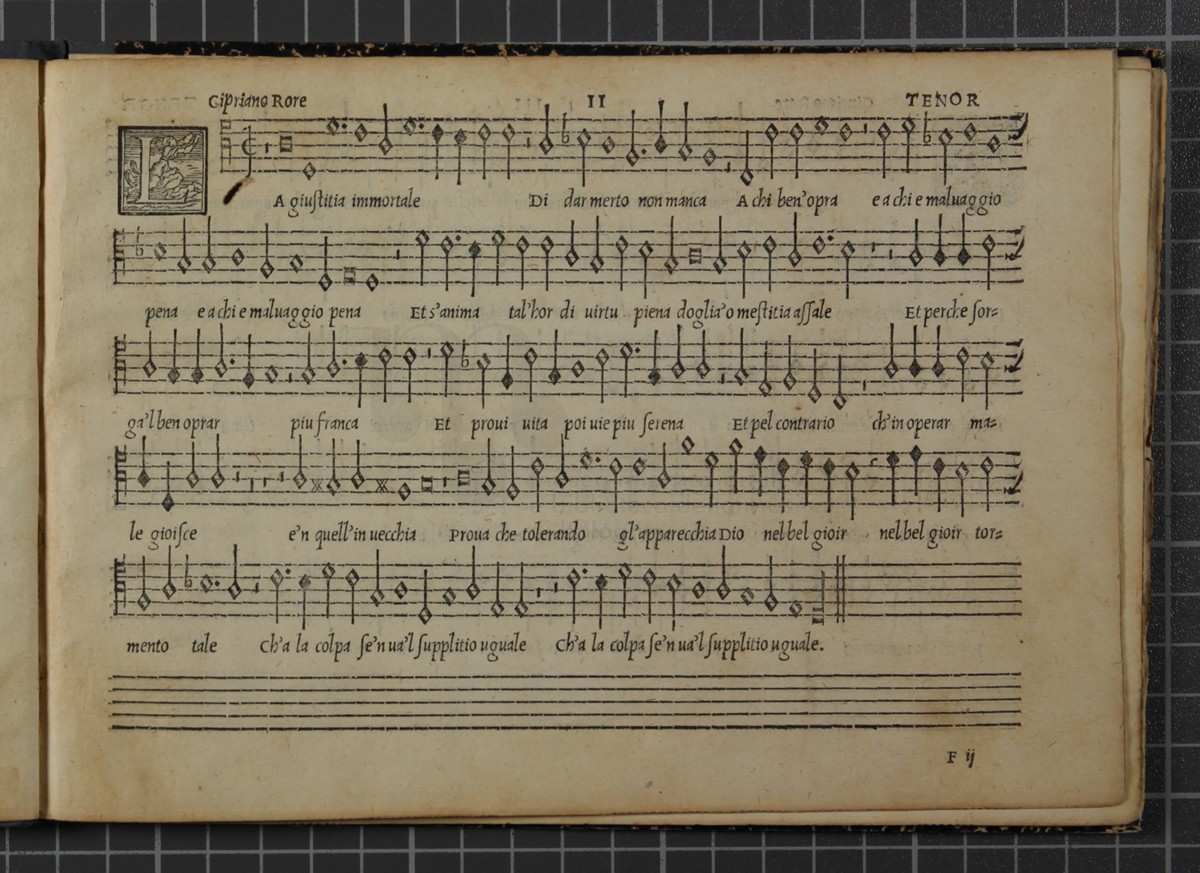 Cipriano Rore II TENOR
LA giuſtitia immortale Di dar merto non manca A chi ben'opra e a chi e maluaggio
pena e a chi e maluaggio pena Et s'anima tal'hor di uirtu piena doglia'o meſtitia aſſale Et perche for=
ga'l ben oprar piu franca Et proui uita poi uie piu ſerena Et pel contrario ch'in operar ma=
le gioiſce e'n quell'in uecchia Proua che tolerando gl'apparecchia Dio nel bel gioir nel bel gioir tor=
mento tale Ch'a la colpa ſe'n ua'l ſupplitio uguale Ch'a la colpa ſe'n ua'l ſupplitio uguale.
F ij